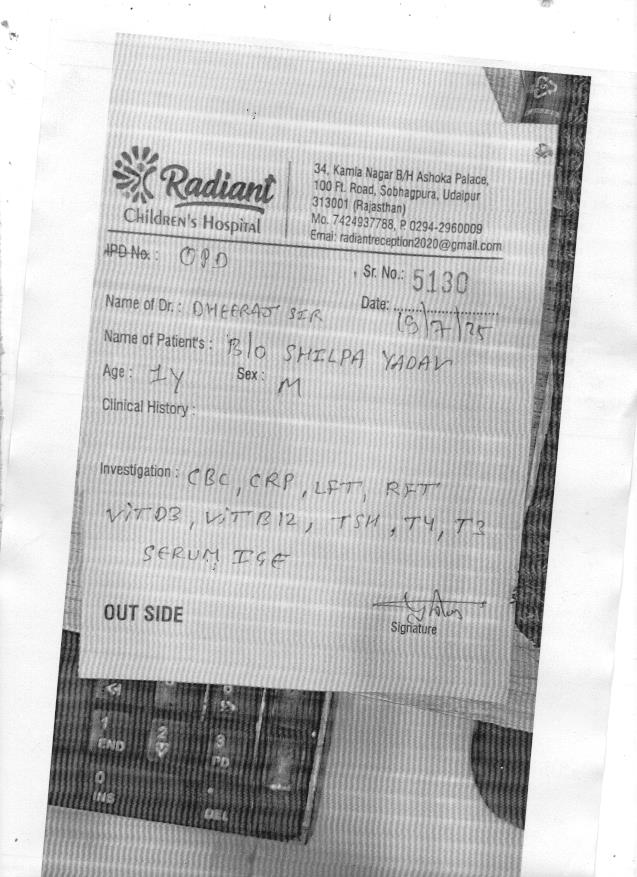 Radiant
CHILDREN'S HOSPITAL
34, Kamla Nagar B/H Ashoka Palace,
100 Ft. Road, Sobhagpura, Udaipur
313001 (Rajasthan)
Mo. 7424937788, P. 0294-2960009
Emai: radiantreception2020@gmail.com
IPD No. : OPD
Sr. No.: 5130
Name of Dr. : DHEERAJ SIR
Date: 19/7/25
Name of Patient's : B/O SHILPA YADAV
Age : 1Y Sex : M
Clinical History :
Investigation : CBC, CRP, LFT, RFT
VITD3, VITB12, TSH, T4, T3
SERUM IGE
OUT SIDE
Signature
1 2 3
END PD
0 .
INS DEL